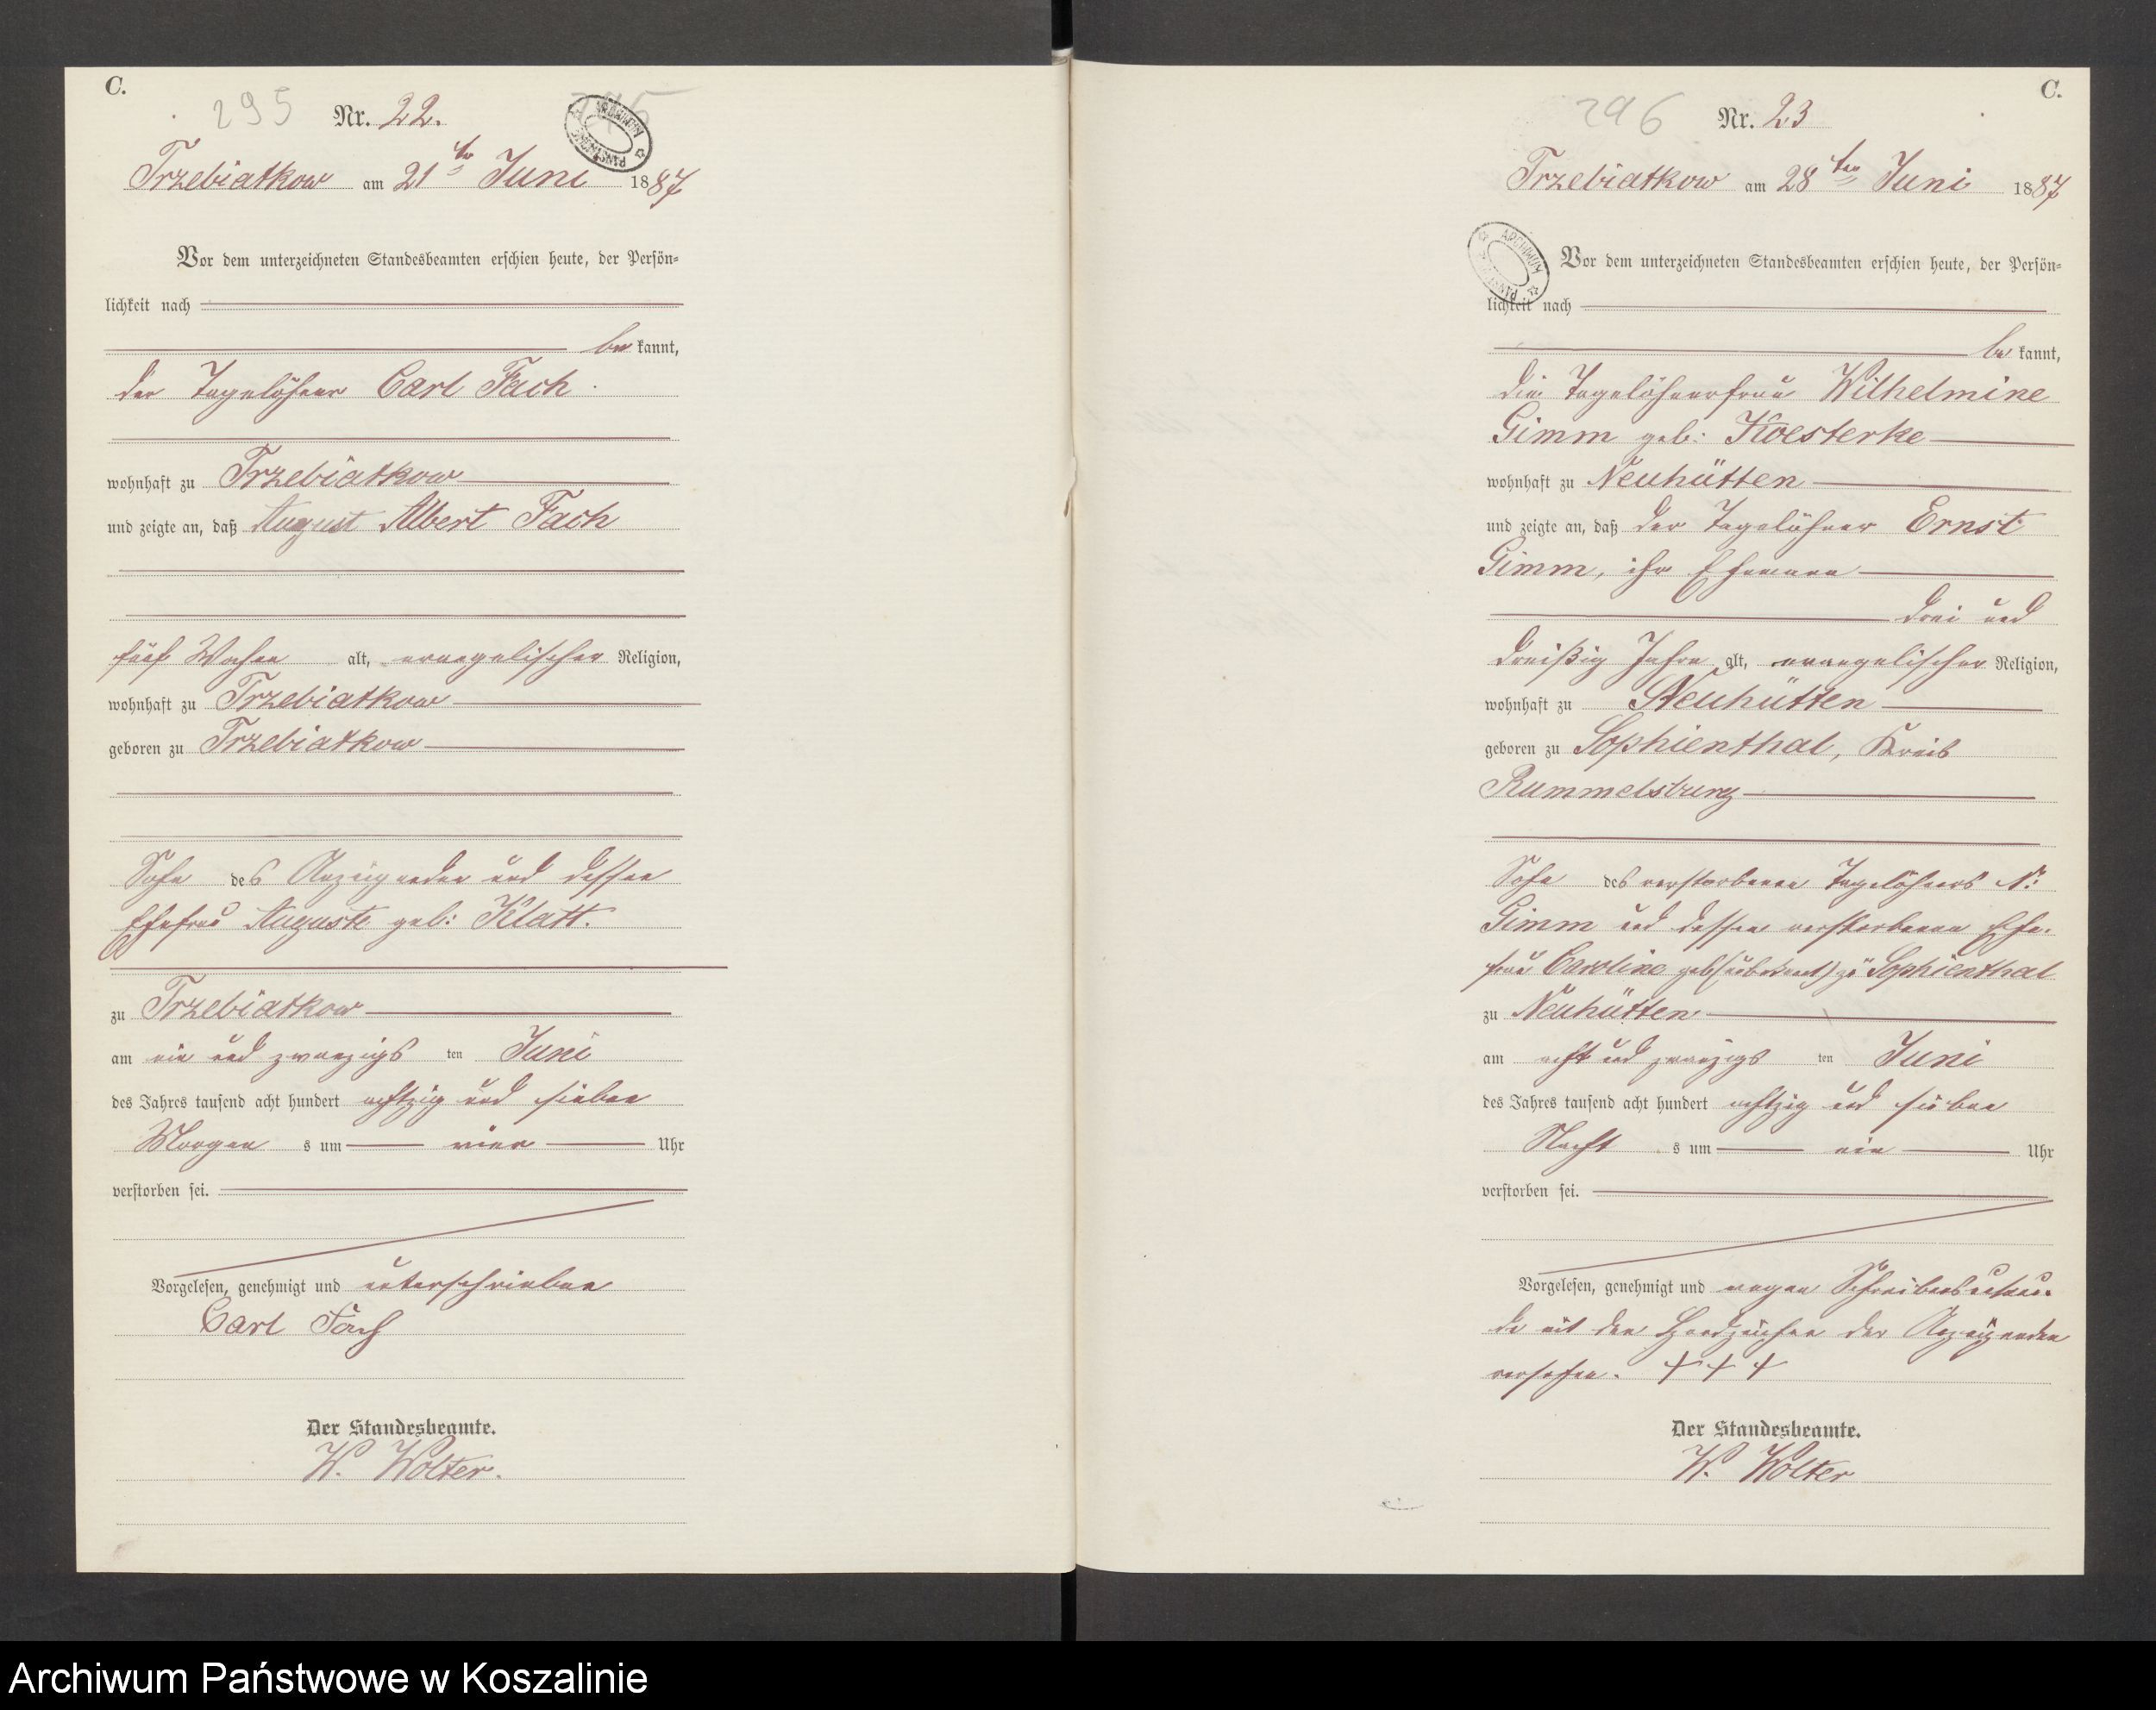 C.
295 Nr. 22.
Trzebiatkow am 21ten Juni 1887
Vor dem unterzeichneten Standesbeamten erschien heute, der Persön-
lichkeit nach
be kannt,
der Tagelöhner Carl Fach
wohnhaft zu Trzebiatkow
und zeigte an, daß August Albert Fach
fünf Wochen alt, evangelischer Religion,
wohnhaft zu Trzebiatkow
geboren zu Trzebiatkow
Sohn des Anzeigenden und dessen
Ehefrau Auguste geb: Klatt.
zu Trzebiatkow
am ein und zwanzigs ten Juni
des Jahres tausend acht hundert achtzig und sieben
Morgen s um vier Uhr
verstorben sei.
Vorgelesen, genehmigt und unterschrieben
Carl Fach
Der Standesbeamte.
W. Wolter.
C.
296 Nr. 23
Trzebiatkow am 28ten Juni 1887
ARCHIWUM PAŃSTWOWE
Vor dem unterzeichneten Standesbeamten erschien heute, der Persön-
lichkeit nach
be kannt,
die Tagelöhnerfrau Wilhelmine
Gimm geb: Koesterke
wohnhaft zu Neuhütten
und zeigte an, daß der Tagelöhner Ernst
Gimm, ihr Ehemann
drei und
dreißig Jahre alt, evangelischer Religion,
wohnhaft zu Neuhütten
geboren zu Sophienthal, Kreis
Rummelsburg
Sohn des verstorbenen Tagelöhners N:
Gimm und dessen verstorbenen Ehe-
frau Caroline geb (unbekannt) zu Sophienthal
zu Neuhütten
am acht und zwanzigs ten Juni
des Jahres tausend acht hundert achtzig und sieben
Nacht s um ein Uhr
verstorben sei.
Vorgelesen, genehmigt und wegen Schreibensunkun-
de mit den Handzeichen der Anzeigenden
versehen. + + +
Der Standesbeamte.
W. Wolter
Archiwum Państwowe w Koszalinie